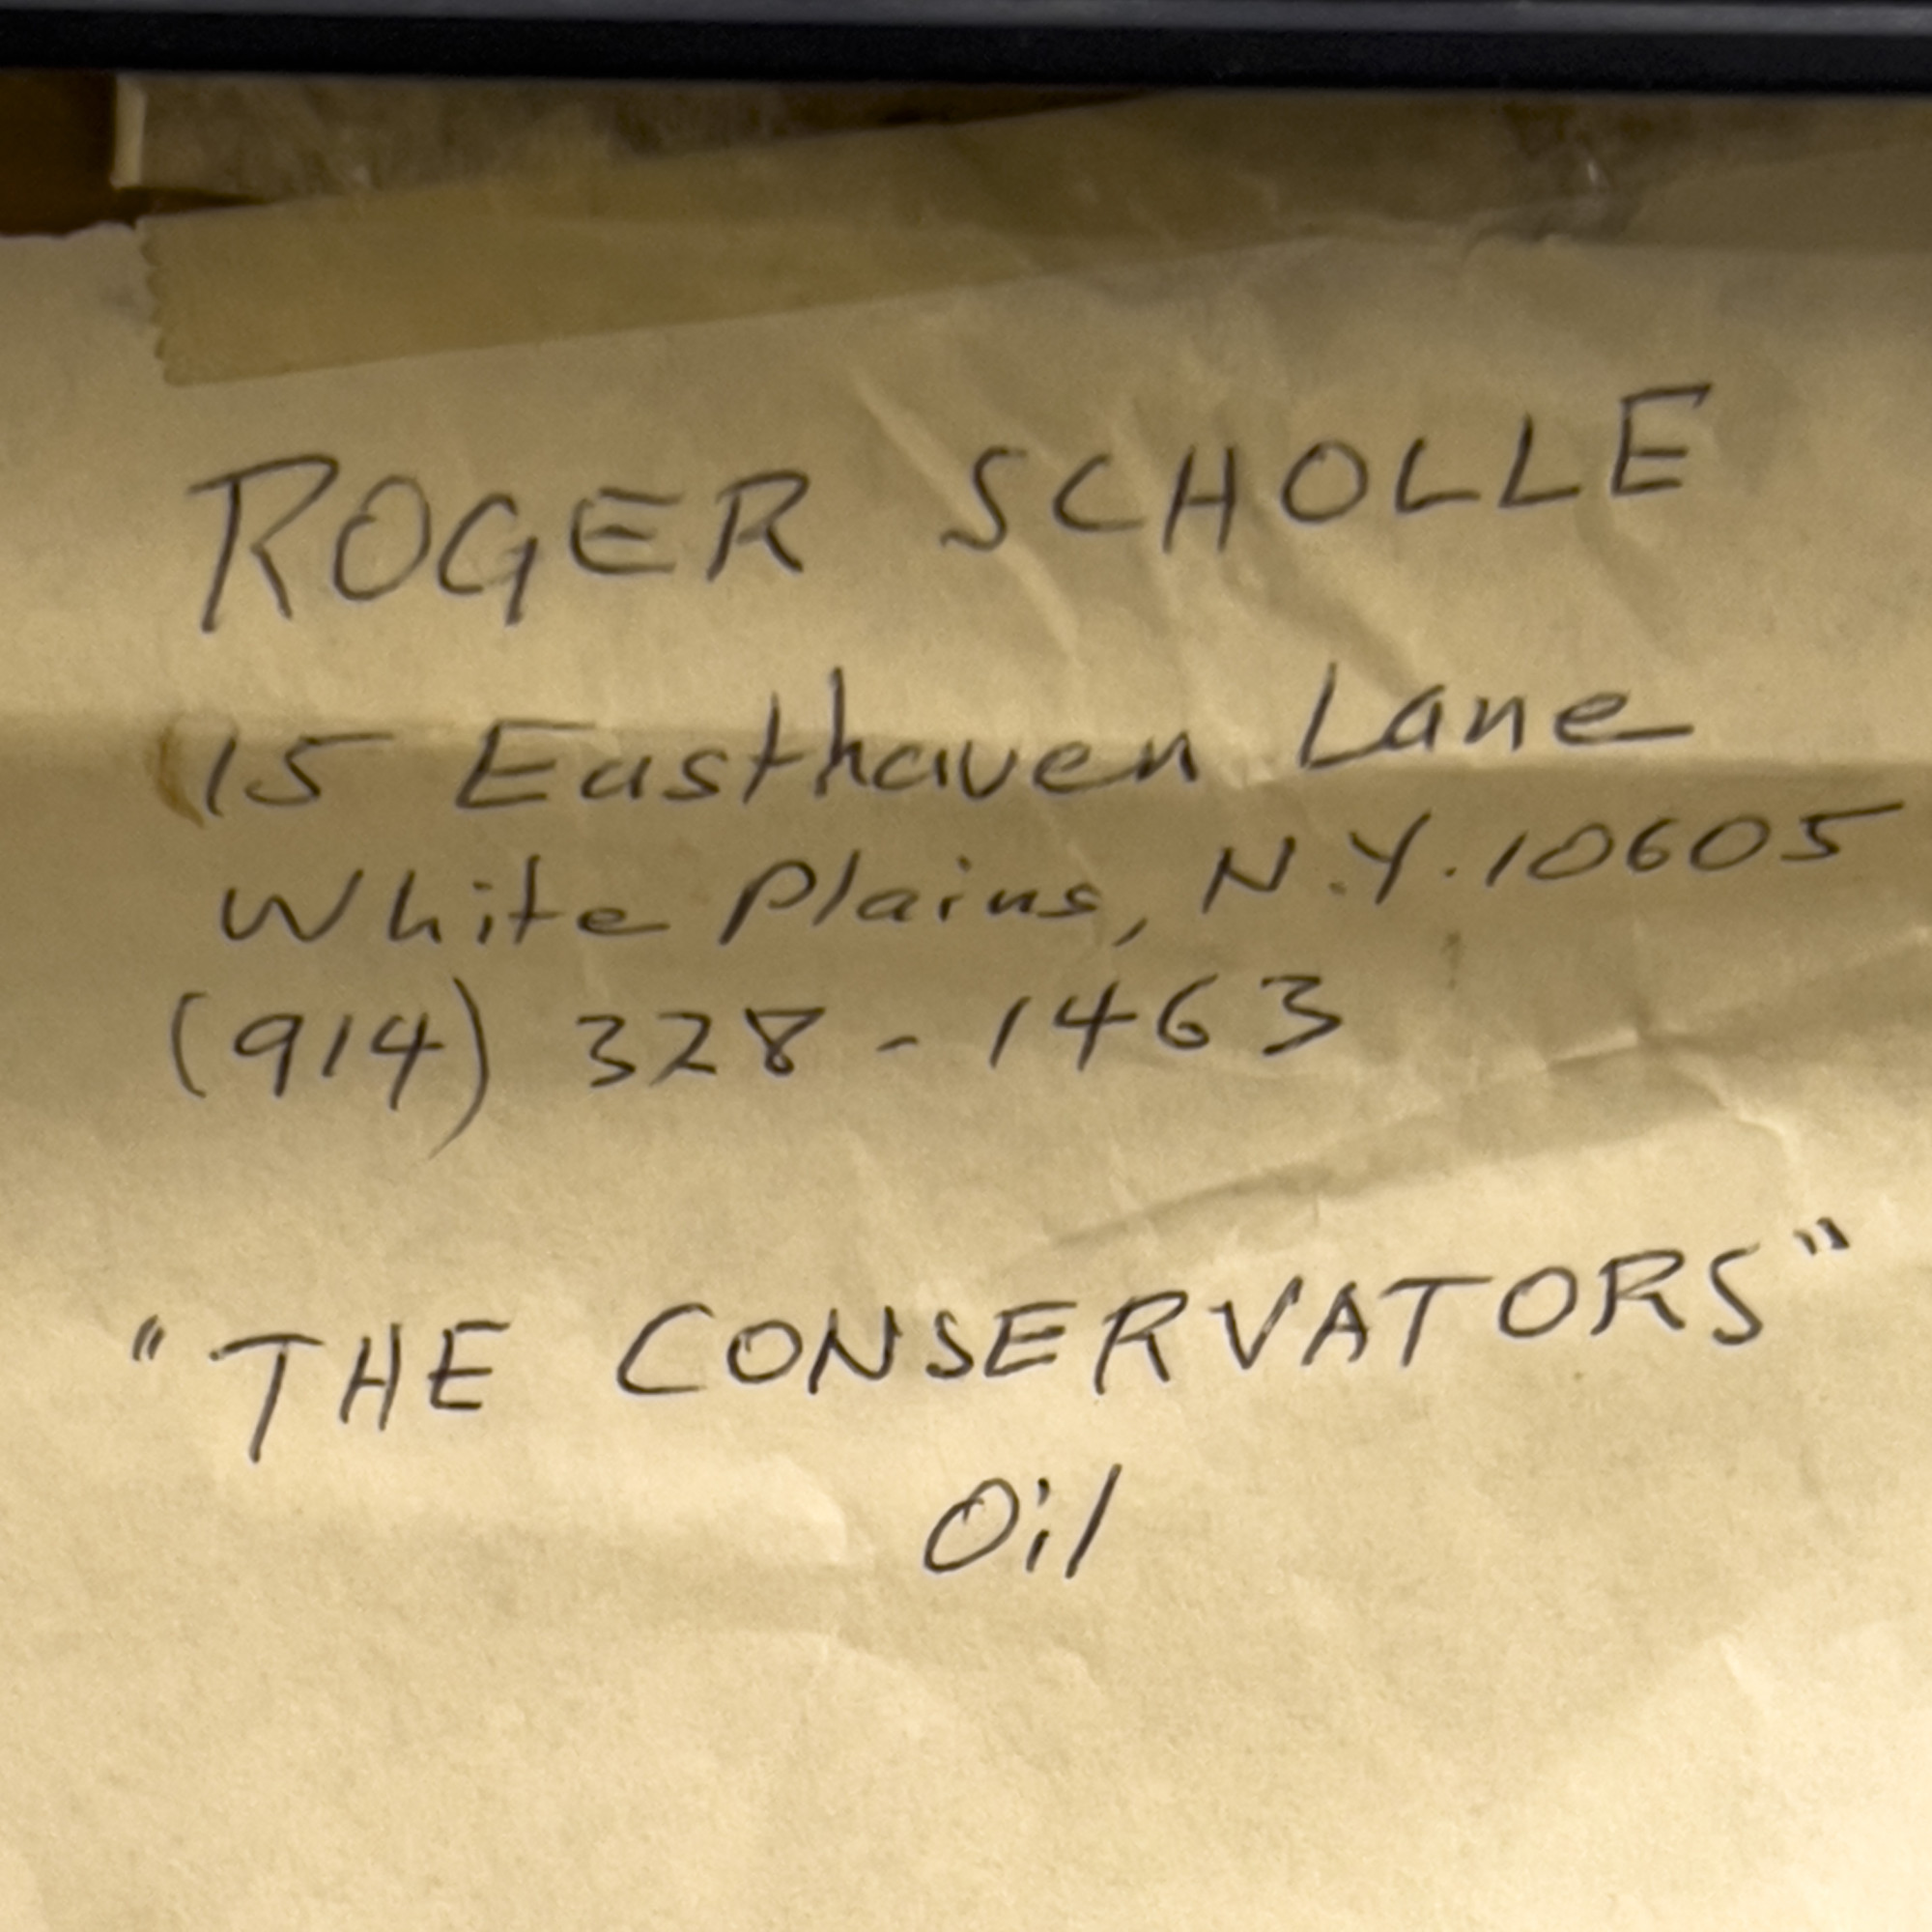 ROGER SCHOLLE
15 Easthaven Lane
White Plains, N.Y. 10605
(914) 328-1463
"THE CONSERVATORS"
Oil